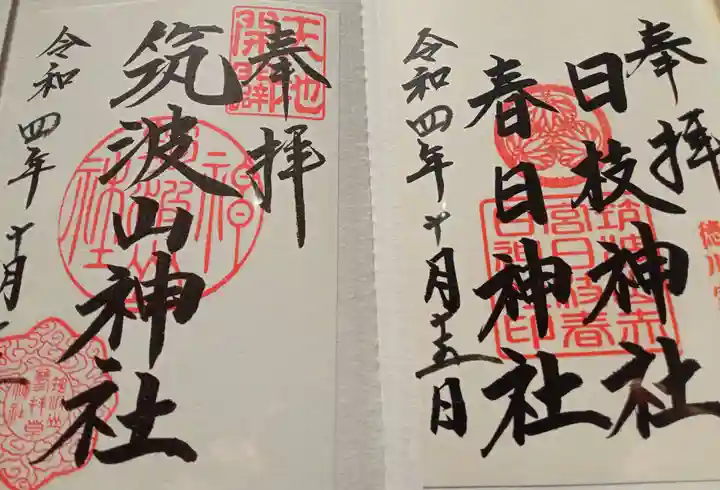 奉拝
日枝神社
春日神社
令和四年十月十五日
奉拝
筑波山神社
令和四年十月
天地
開闢